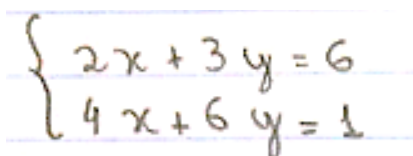 2x + 3y = 6
4x + 6y = 1